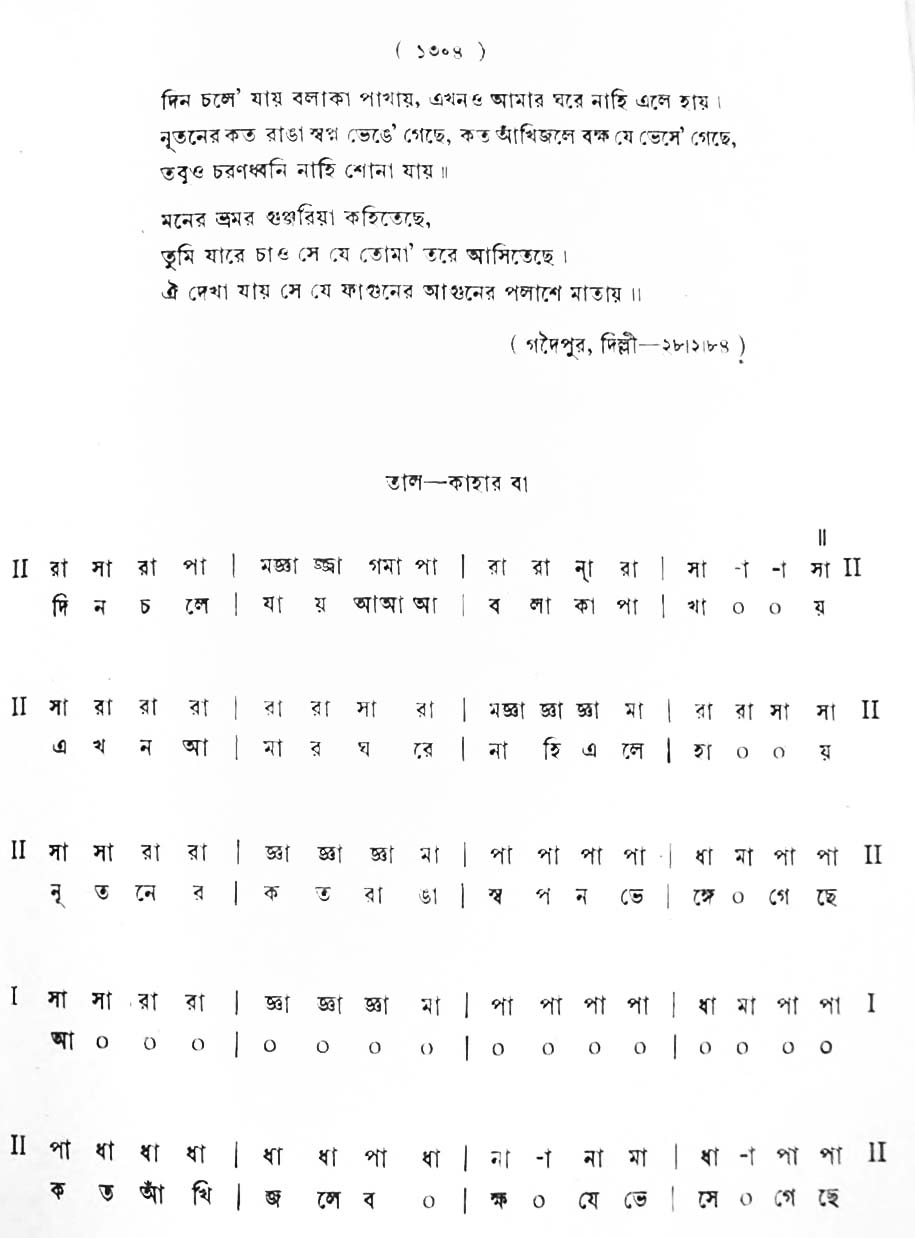 ( ১৩০৪ )
দিন চলে' যায় বলাকা পাখায়, এখনও আমার ঘরে নাহি এলে হায় ।
নূতনের কত রাঙা স্বপ্ন ভেঙে' গেছে, কত আঁখিজলে বক্ষ যে ভেসে' গেছে,
তবুও চরণধ্বনি নাহি শোনা যায় ॥
মনের ভ্রমর গুঞ্জরিয়া কহিতেছে,
তুমি যারে চাও সে যে তোমা' তরে আসিতেছে ।
ঐ দেখা যায় সে যে ফাগুনের আগুনের পলাশে মাতায় ॥
( গদৈপুর, দিল্লী—২৮।২।৮৪ )
তাল—কাহার বা
॥
II রা সা রা পা | মজ্ঞা জ্ঞা গমা পা | রা রা ন্‌া রা | সা -া -া সা II
দি ন চ লে | যা য় আআ আ | ব লা কা পা | খা ০ ০ য়
II সা রা রা রা | রা রা সা রা | মজ্ঞা জ্ঞা জ্ঞা মা | রা রা সা সা II
এ খ ন আ | মা র ঘ রে | না হি এ লে | হা ০ ০ য়
II সা সা রা রা | জ্ঞা জ্ঞা জ্ঞা মা | পা পা পা পা | ধা মা পা পা II
নূ ত নে র | ক ত রা ঙা | স্ব প ন ভে | ঙ্গে ০ গে ছে
I সা সা রা রা | জ্ঞা জ্ঞা জ্ঞা মা | পা পা পা পা | ধা মা পা পা I
আ ০ ০ ০ | ০ ০ ০ ০ | ০ ০ ০ ০ | ০ ০ ০ ০
II পা ধা ধা ধা | ধা ধা পা ধা | না -া না মা | ধা -া পা পা II
ক ত আঁ খি | জ লে ব ০ | ক্ষ ০ যে ভে | সে ০ গে ছে